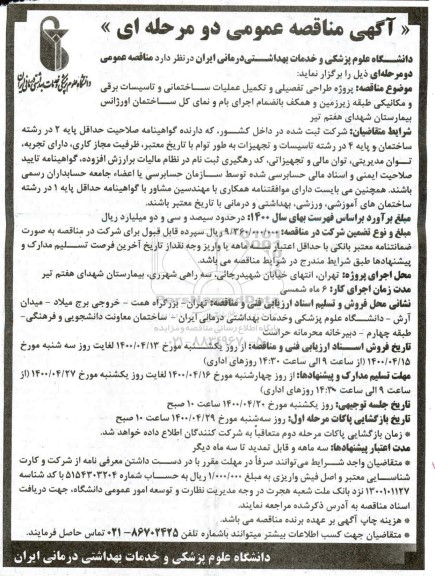 « آگهی مناقصه عمومی دو مرحله ای »
دانشگاه علوم پزشکی و خدمات بهداشتی درمانی ایران
دانشگاه علوم پزشکی و خدمات بهداشتی درمانی ایران درنظر دارد مناقصه عمومی
دومرحله‌ای ذیل را برگزار نماید:
موضوع مناقصه: پروژه طراحی تفصیلی و تکمیل عملیات ساختمانی و تاسیسات برقی
و مکانیکی طبقه زیرزمین و همکف بانضمام اجرای بام و نمای کل ساختمان اورژانس
بیمارستان شهدای هفتم تیر
شرایط متقاضیان: شرکت ثبت شده در داخل کشور، که دارنده گواهینامه صلاحیت حداقل پایه ۲ در رشته
ساختمان و پایه ۴ در رشته تاسیسات و تجهیزات به طور توام با تاریخ معتبر، ظرفیت مجاز کاری، دارای تجربه،
توان مدیریتی، توان مالی و تجهیزاتی، کد رهگیری ثبت نام در نظام مالیات برارزش افزوده، گواهینامه تایید
صلاحیت ایمنی و اسناد مالی حسابرسی شده توسط سازمان حسابرسی یا اعضاء جامعه حسابداران رسمی
باشند. همچنین می بایست دارای موافقتنامه همکاری با مهندسین مشاور با گواهینامه حداقل پایه ۱ در رشته
ساختمان های آموزشی، ورزشی، بهداشتی و درمانی با تاریخ معتبر باشند.
مبلغ برآورد براساس فهرست بهای سال ۱۴۰۰: درحدود سیصد و سی و دو میلیارد ریال
مبلغ و نوع تضمین شرکت در مناقصه: ۹/۳۶۰/۰۰۰/۰۰۰ ریال سپرده قابل قبول برای شرکت در مناقصه به صورت
ضمانتنامه معتبر بانکی با حداقل اعتبار سه ماهه یا واریز وجه نقداز تاریخ آخرین فرصت تسلیم مدارک و
پیشنهادها طبق شرایط مندرج در شرایط مناقصه می باشد.
محل اجرای پروژه: تهران، انتهای خیابان شهیدرجائی، سه راهی شهرری، بیمارستان شهدای هفتم تیر
مدت زمان اجرای کار: ۶ ماه شمسی
نشانی محل فروش و تسلیم اسناد ارزیابی فنی و مناقصه: تهران- بزرگراه همت - خروجی برج میلاد - میدان
آرش - دانشگاه علوم پزشکی وخدمات بهداشتی درمانی ایران - ساختمان معاونت دانشجویی و فرهنگی-
طبقه چهارم - دبیرخانه محرمانه حراست
تاریخ فروش اسناد ارزیابی فنی و مناقصه: از روز یکشنبه مورخ ۱۴۰۰/۰۴/۱۳ لغایت روز سه شنبه مورخ
۱۴۰۰/۰۴/۱۵ (از ساعت ۹ الی ساعت ۱۴:۳۰ روزهای اداری)
مهلت تسلیم مدارک و پیشنهادها: از روز چهارشنبه مورخ ۱۴۰۰/۰۴/۱۶ لغایت روز یکشنبه مورخ ۱۴۰۰/۰۴/۲۷ (از
ساعت ۹ الی ساعت ۱۴:۳۰ روزهای اداری)
تاریخ جلسه توجیهی: روز یکشنبه مورخ ۱۴۰۰/۰۴/۲۰ ساعت ۱۰ صبح
تاریخ بازگشایی پاکات مرحله اول: روز سه‌شنبه مورخ ۱۴۰۰/۰۴/۲۹ ساعت ۱۰ صبح
* زمان بازگشایی پاکات مرحله دوم متعاقباً به شرکت کنندگان اطلاع داده خواهد شد.
مدت اعتبار پیشنهادها: سه ماهه و قابل تمدید تا سه ماه دیگر
* متقاضیان واجد شرایط می‌توانند صرفاً در مهلت مقرر با در دست داشتن معرفی نامه از شرکت و کارت
شناسایی معتبر و اصل فیش واریزی به مبلغ ۱/۰۰۰/۰۰۰ ریال به حساب شماره ۵۱۵۴۳۰۳۲۰۴ با کد شناسه
۱۳۰۰۱۰۱۱۲۷ نزد بانک ملت شعبه هجرت در وجه مدیریت نظارت و توسعه امور عمومی دانشگاه، جهت دریافت
اسناد مناقصه به آدرس ذکرشده مراجعه نمایند.
* هزینه چاپ آگهی بر عهده برنده مناقصه می باشد.
* متقاضیان جهت کسب اطلاعات بیشتر میتوانند باشماره تلفن ۸۶۷۰۲۴۲۵-۰۲۱ تماس حاصل فرمایند.
دانشگاه علوم پزشکی و خدمات بهداشتی درمانی ایران